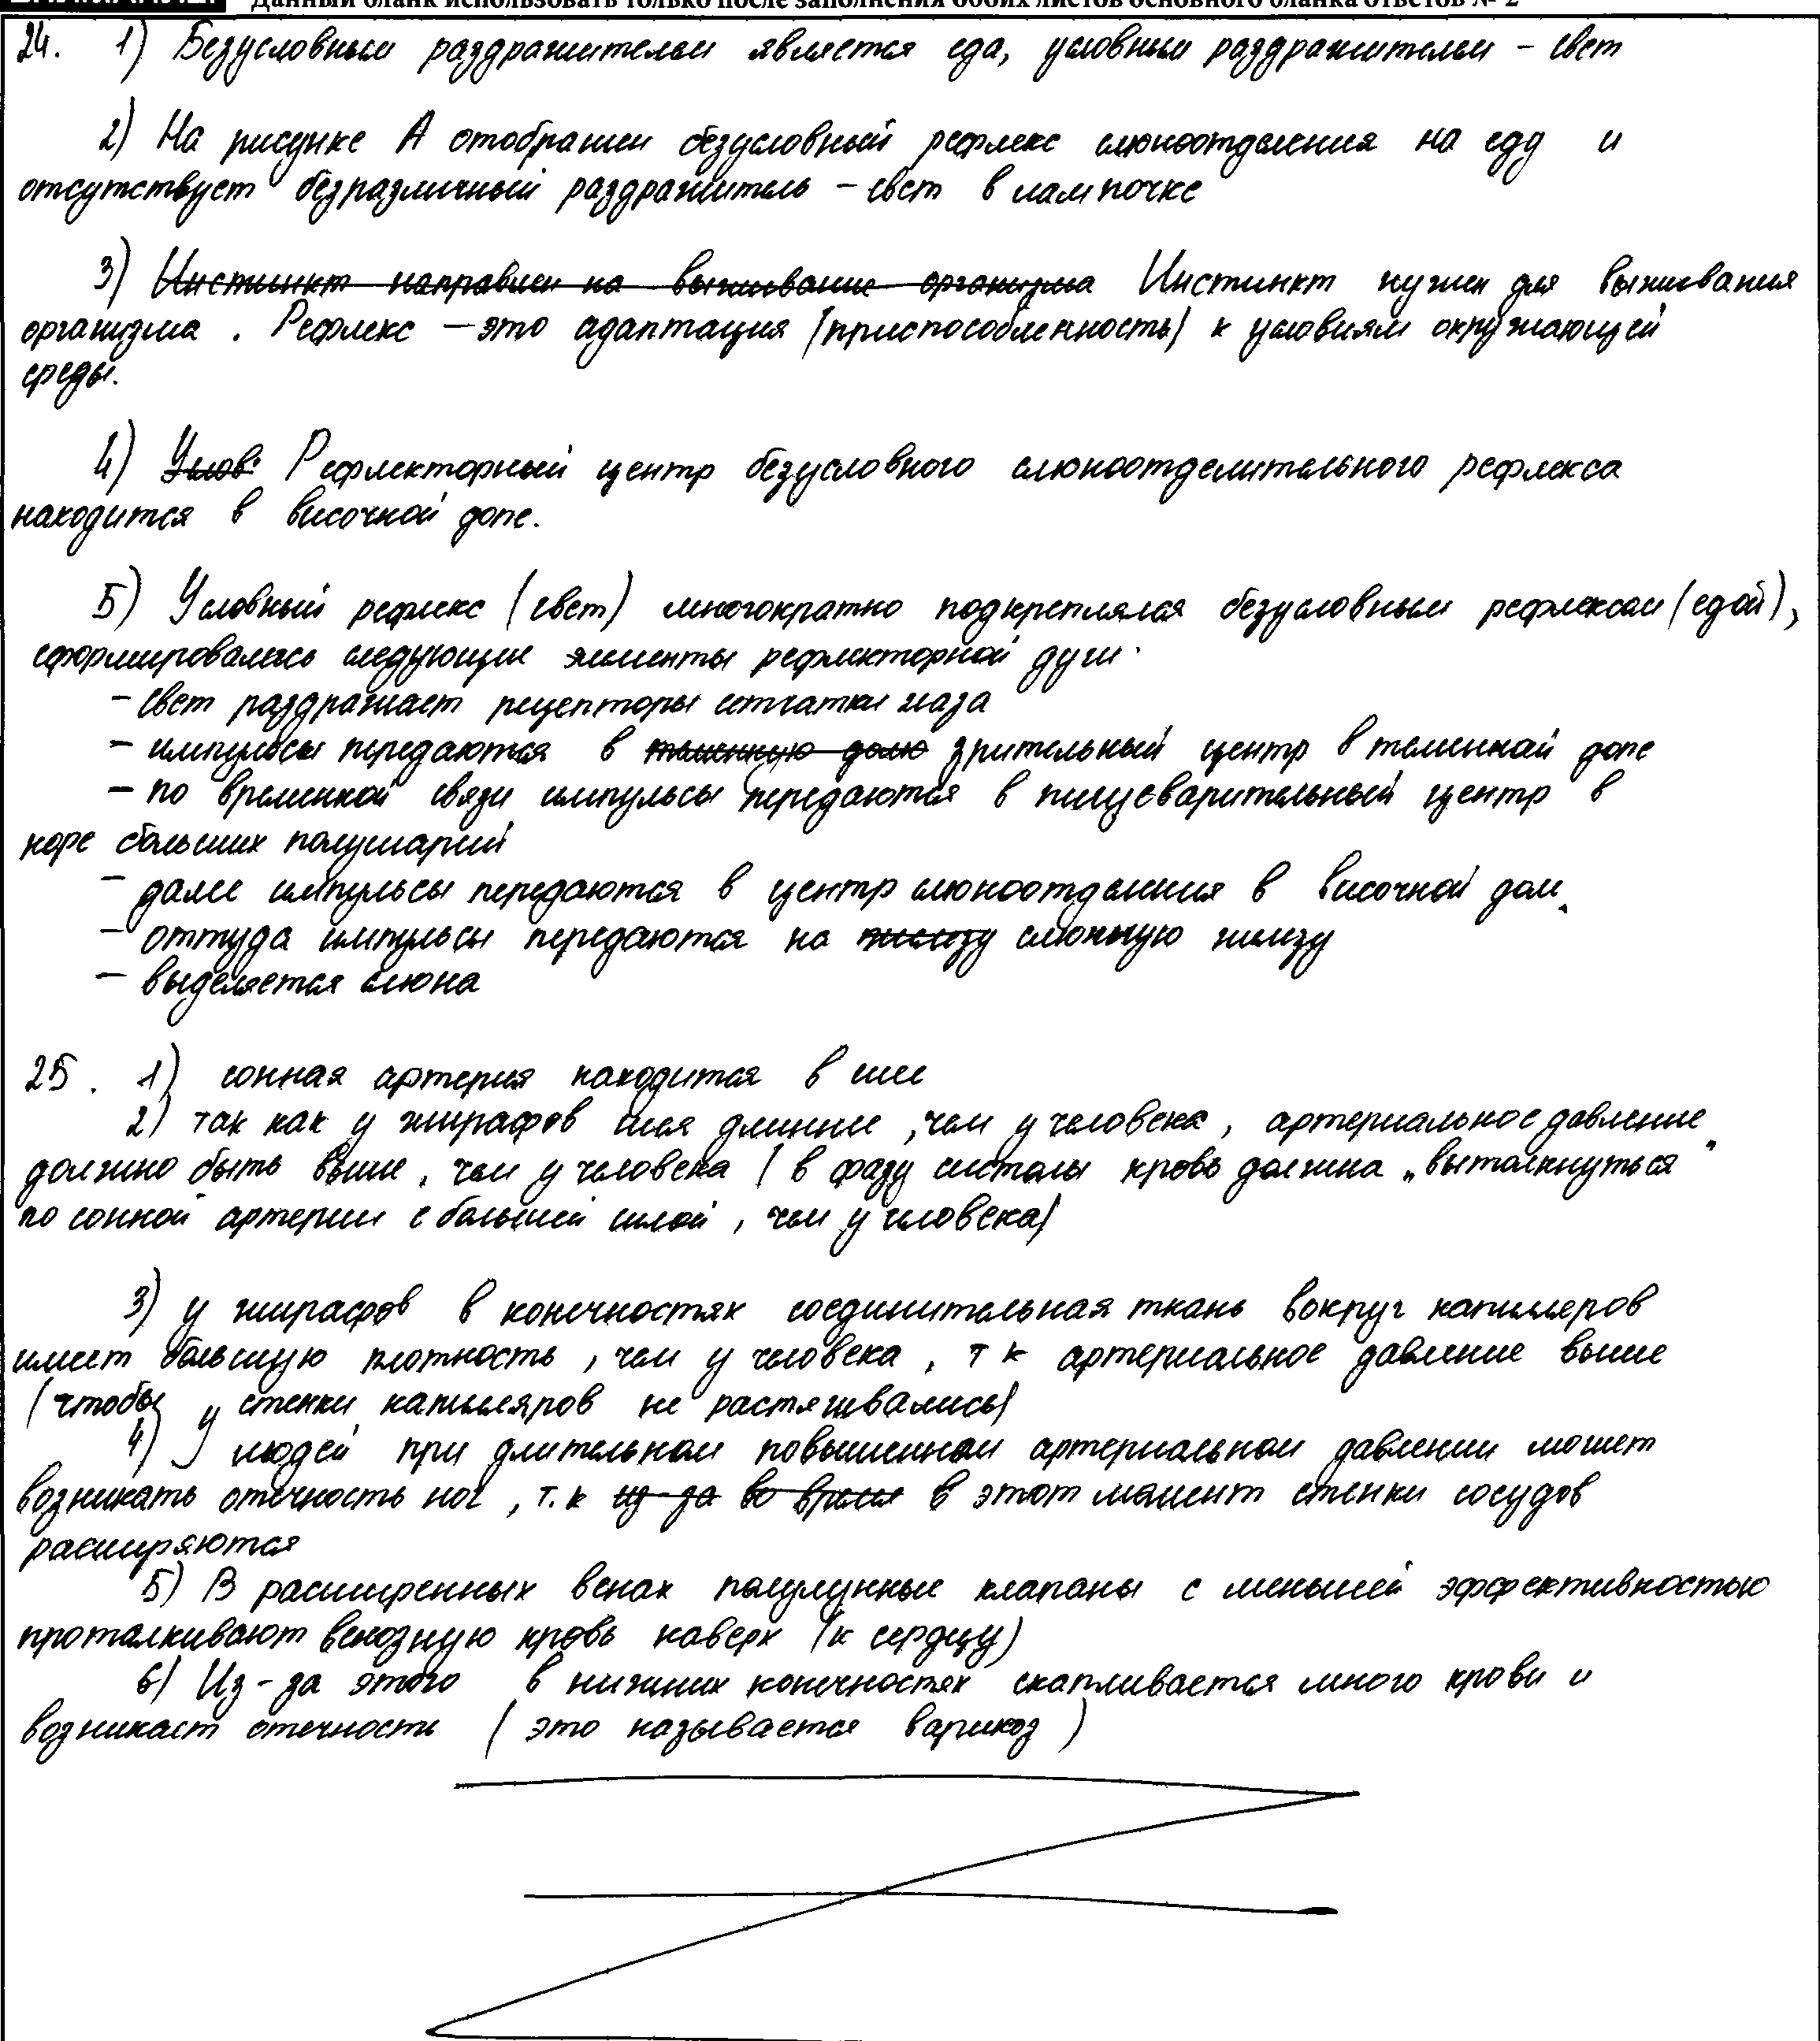 Данный бланк использовать только после заполнения обоих листов основного бланка ответов № 2
24. 1) Безусловным раздражителем является еда, условным раздражителем – свет
2) На рисунке А отображен безусловный рефлекс слюноотделения на еду и
отсутствует безразличный раздражитель – свет в лампочке
3) Инстинкт направлен на выживание организма Инстинкт нужен для выживания
организма. Рефлекс – это адаптация (приспособленность) к условиям окружающей
среды.
4) Услов. Рефлекторный центр безусловного слюноотделительного рефлекса
находится в височной доле.
5) Условный рефлекс (свет) многократно подкреплялся безусловным рефлексом (едой),
сформировались следующие элементы рефлекторной дуги:
– свет раздражает рецепторы сетчатки глаза
– импульсы передаются в теменную долю зрительный центр в теменной доле
– по временной связи импульсы передаются в пищеварительный центр в
коре больших полушарий
– далее импульсы передаются в центр слюноотделения в височной доли
– оттуда импульсы передаются на железу слюнную железу
– выделяется слюна
25. 1) сонная артерия находится в шее
2) так как у жирафов шея длиннее, чем у человека, артериальное давление
должно быть выше, чем у человека (в фазу систолы кровь должна „вытолкнуться"
по сонной артерии с большей силой, чем у человека)
3) у жирафов в конечностях соединительная ткань вокруг капилляров
имеет большую плотность, чем у человека, т к артериальное давление выше
(чтобы стенки капилляров не растягивались)
4) У людей при длительном повышенном артериальном давлении может
возникать отечность ног, т.к из-за во время в этот момент стенки сосудов
расширяются
5) В расширенных венах полулунные клапаны с меньшей эффективностью
проталкивают венозную кровь наверх (к сердцу)
6) Из-за этого в нижних конечностях скапливается много крови и
возникает отечность (это называется варикоз)